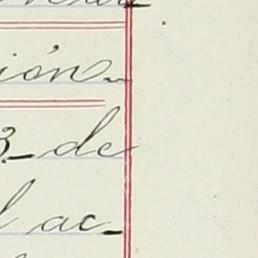 ión.
3_ de
l ac_